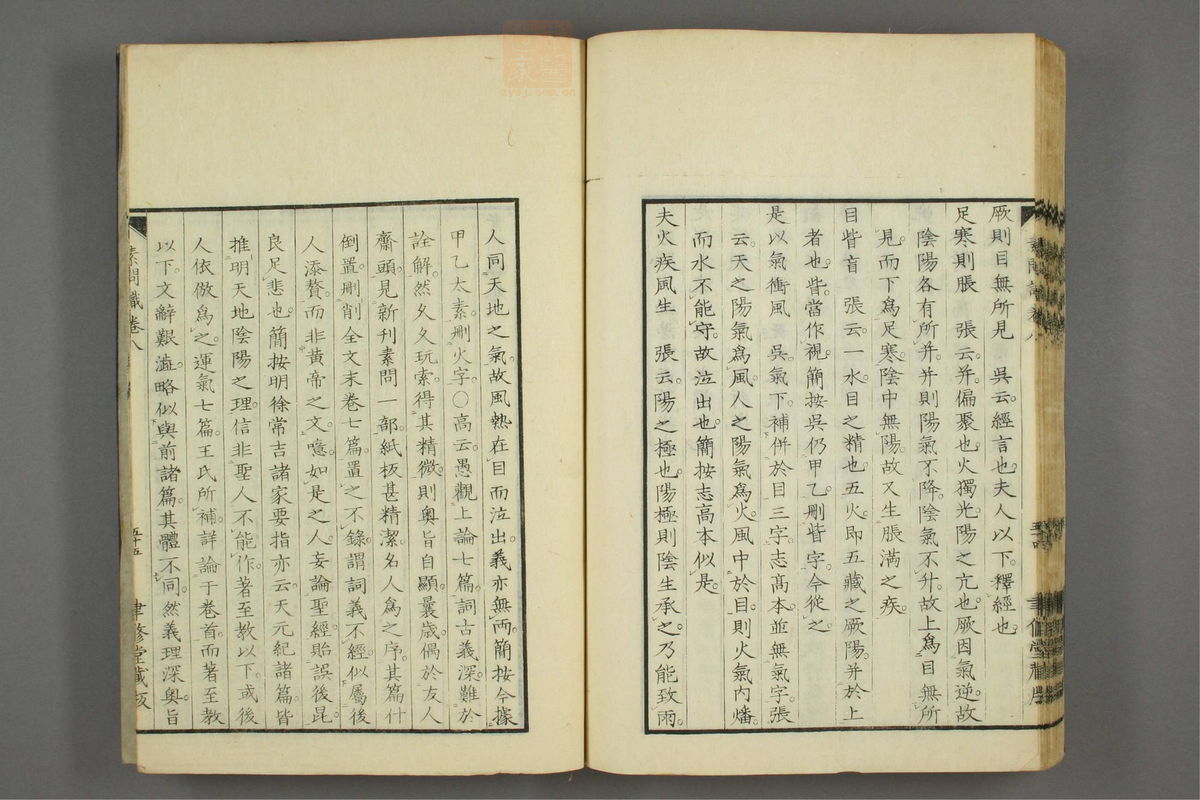 厥則目無所見　吳云。經言也。夫人以下。釋經也。
足寒則脹　張云。并。偏聚也。火獨光。陽之亢也。厥因氣逆。故
陰陽各有所并。并則陽氣不降。陰氣不升。故上爲目無所
見。而下爲足寒。陰中無陽。故又生脹滿之疾。
目眥盲　張云。一水。目之精也。五火。即五藏之厥陽并於上
者也。眥當作視。簡按吳仍甲乙。刪眥字。今從之。
是以氣衝風　吳氣下補併於目三字。志高本並無氣字。張
云。天之陽氣爲風。人之陽氣爲火。風中於目。則火氣內燔。
而水不能守。故泣出也。簡按志高本似是。
夫火疾風生　張云。陽之極也。陽極則陰生承之。乃能致雨。
人同天地之氣。故風熱在目而泣出。義亦無兩。簡按今據
甲乙太素。刪火字。○高云。愚觀上論七篇。詞古義深。難於
詮解。然久久玩索。得其精微。則奧旨自顯。曩歲偶於友人
齋頭。見新刊素問一部。紙板甚精潔。名人爲之序。其篇什
倒置。刪削全文。末卷七篇。置之不錄。謂詞義不經。似屬後
人添贅。而非黃帝之文。噫。如是之人。妄論聖經。貽誤後昆。
良足悲也。簡按明徐常吉諸家要指亦云。天元紀諸篇。皆
推明天地陰陽之理。信非聖人不能作。著至教以下。或後
人依倣爲之。運氣七篇。王氏所補。詳論于卷首。而著至教
以下。文辭艱澁。略似與前諸篇其體不同。然義理深奧。旨
素問識卷八
五十五
聿修堂藏板